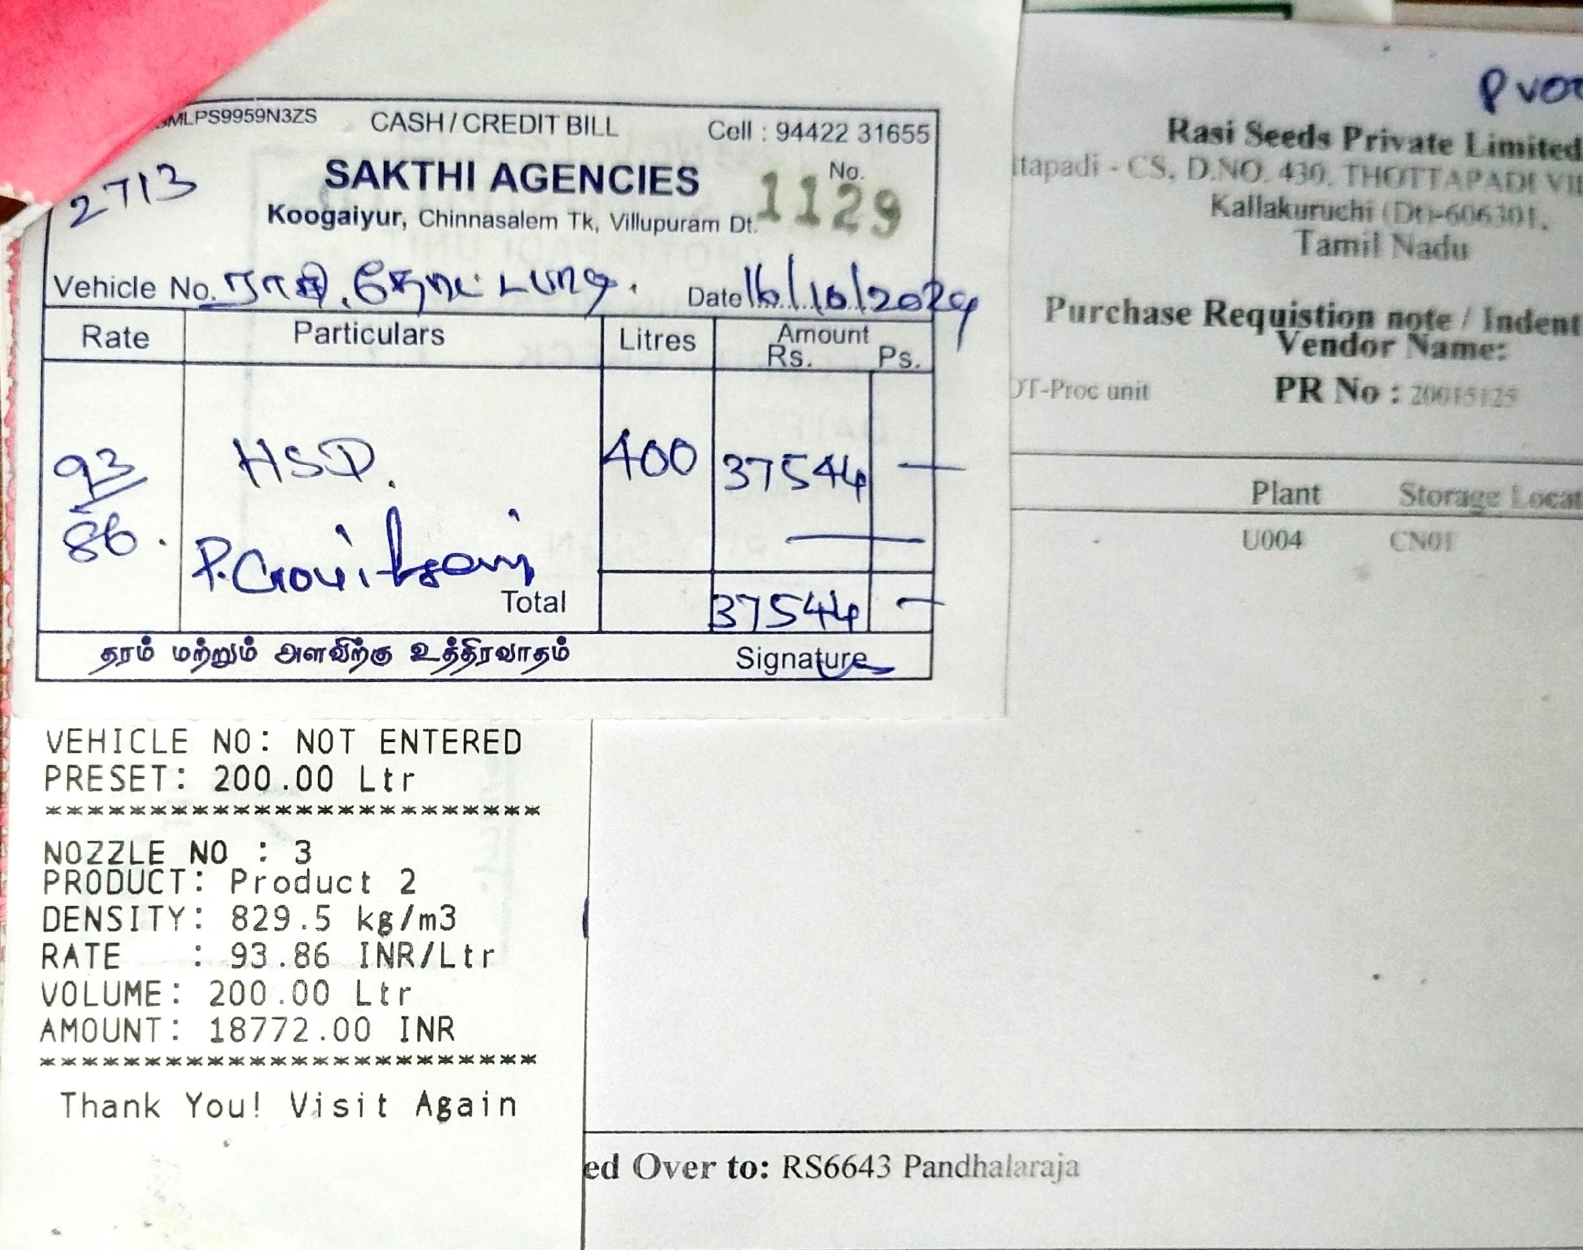 MLPS9959N3ZS CASH / CREDIT BILL Cell : 94422 31655
2713 SAKTHI AGENCIES No. 1129
Koogaiyur, Chinnasalem Tk, Villupuram Dt.
Vehicle No. ராசி, தோட்டபாடி. Date 16/10/2024
Rate Particulars Litres Amount
Rs. Ps.
93 HSD. 400 37544 —
86.
Total 37544 —
தரம் மற்றும் அளவிற்கு உத்திரவாதம் Signature
VEHICLE NO: NOT ENTERED
PRESET: 200.00 Ltr
************************
NOZZLE NO : 3
PRODUCT: Product 2
DENSITY: 829.5 kg/m3
RATE : 93.86 INR/Ltr
VOLUME: 200.00 Ltr
AMOUNT: 18772.00 INR
************************
Thank You! Visit Again
Rasi Seeds Private Limited
ttapadi - CS, D.NO. 430, THOTTAPADI VIL
Kallakuruchi (Dt)-606301,
Tamil Nadu
Purchase Requistion note / Indent
Vendor Name:
OT-Proc unit PR No : 20015125
Plant Storage Locat
U004 CN01
ed Over to: RS6643 Pandhalaraja